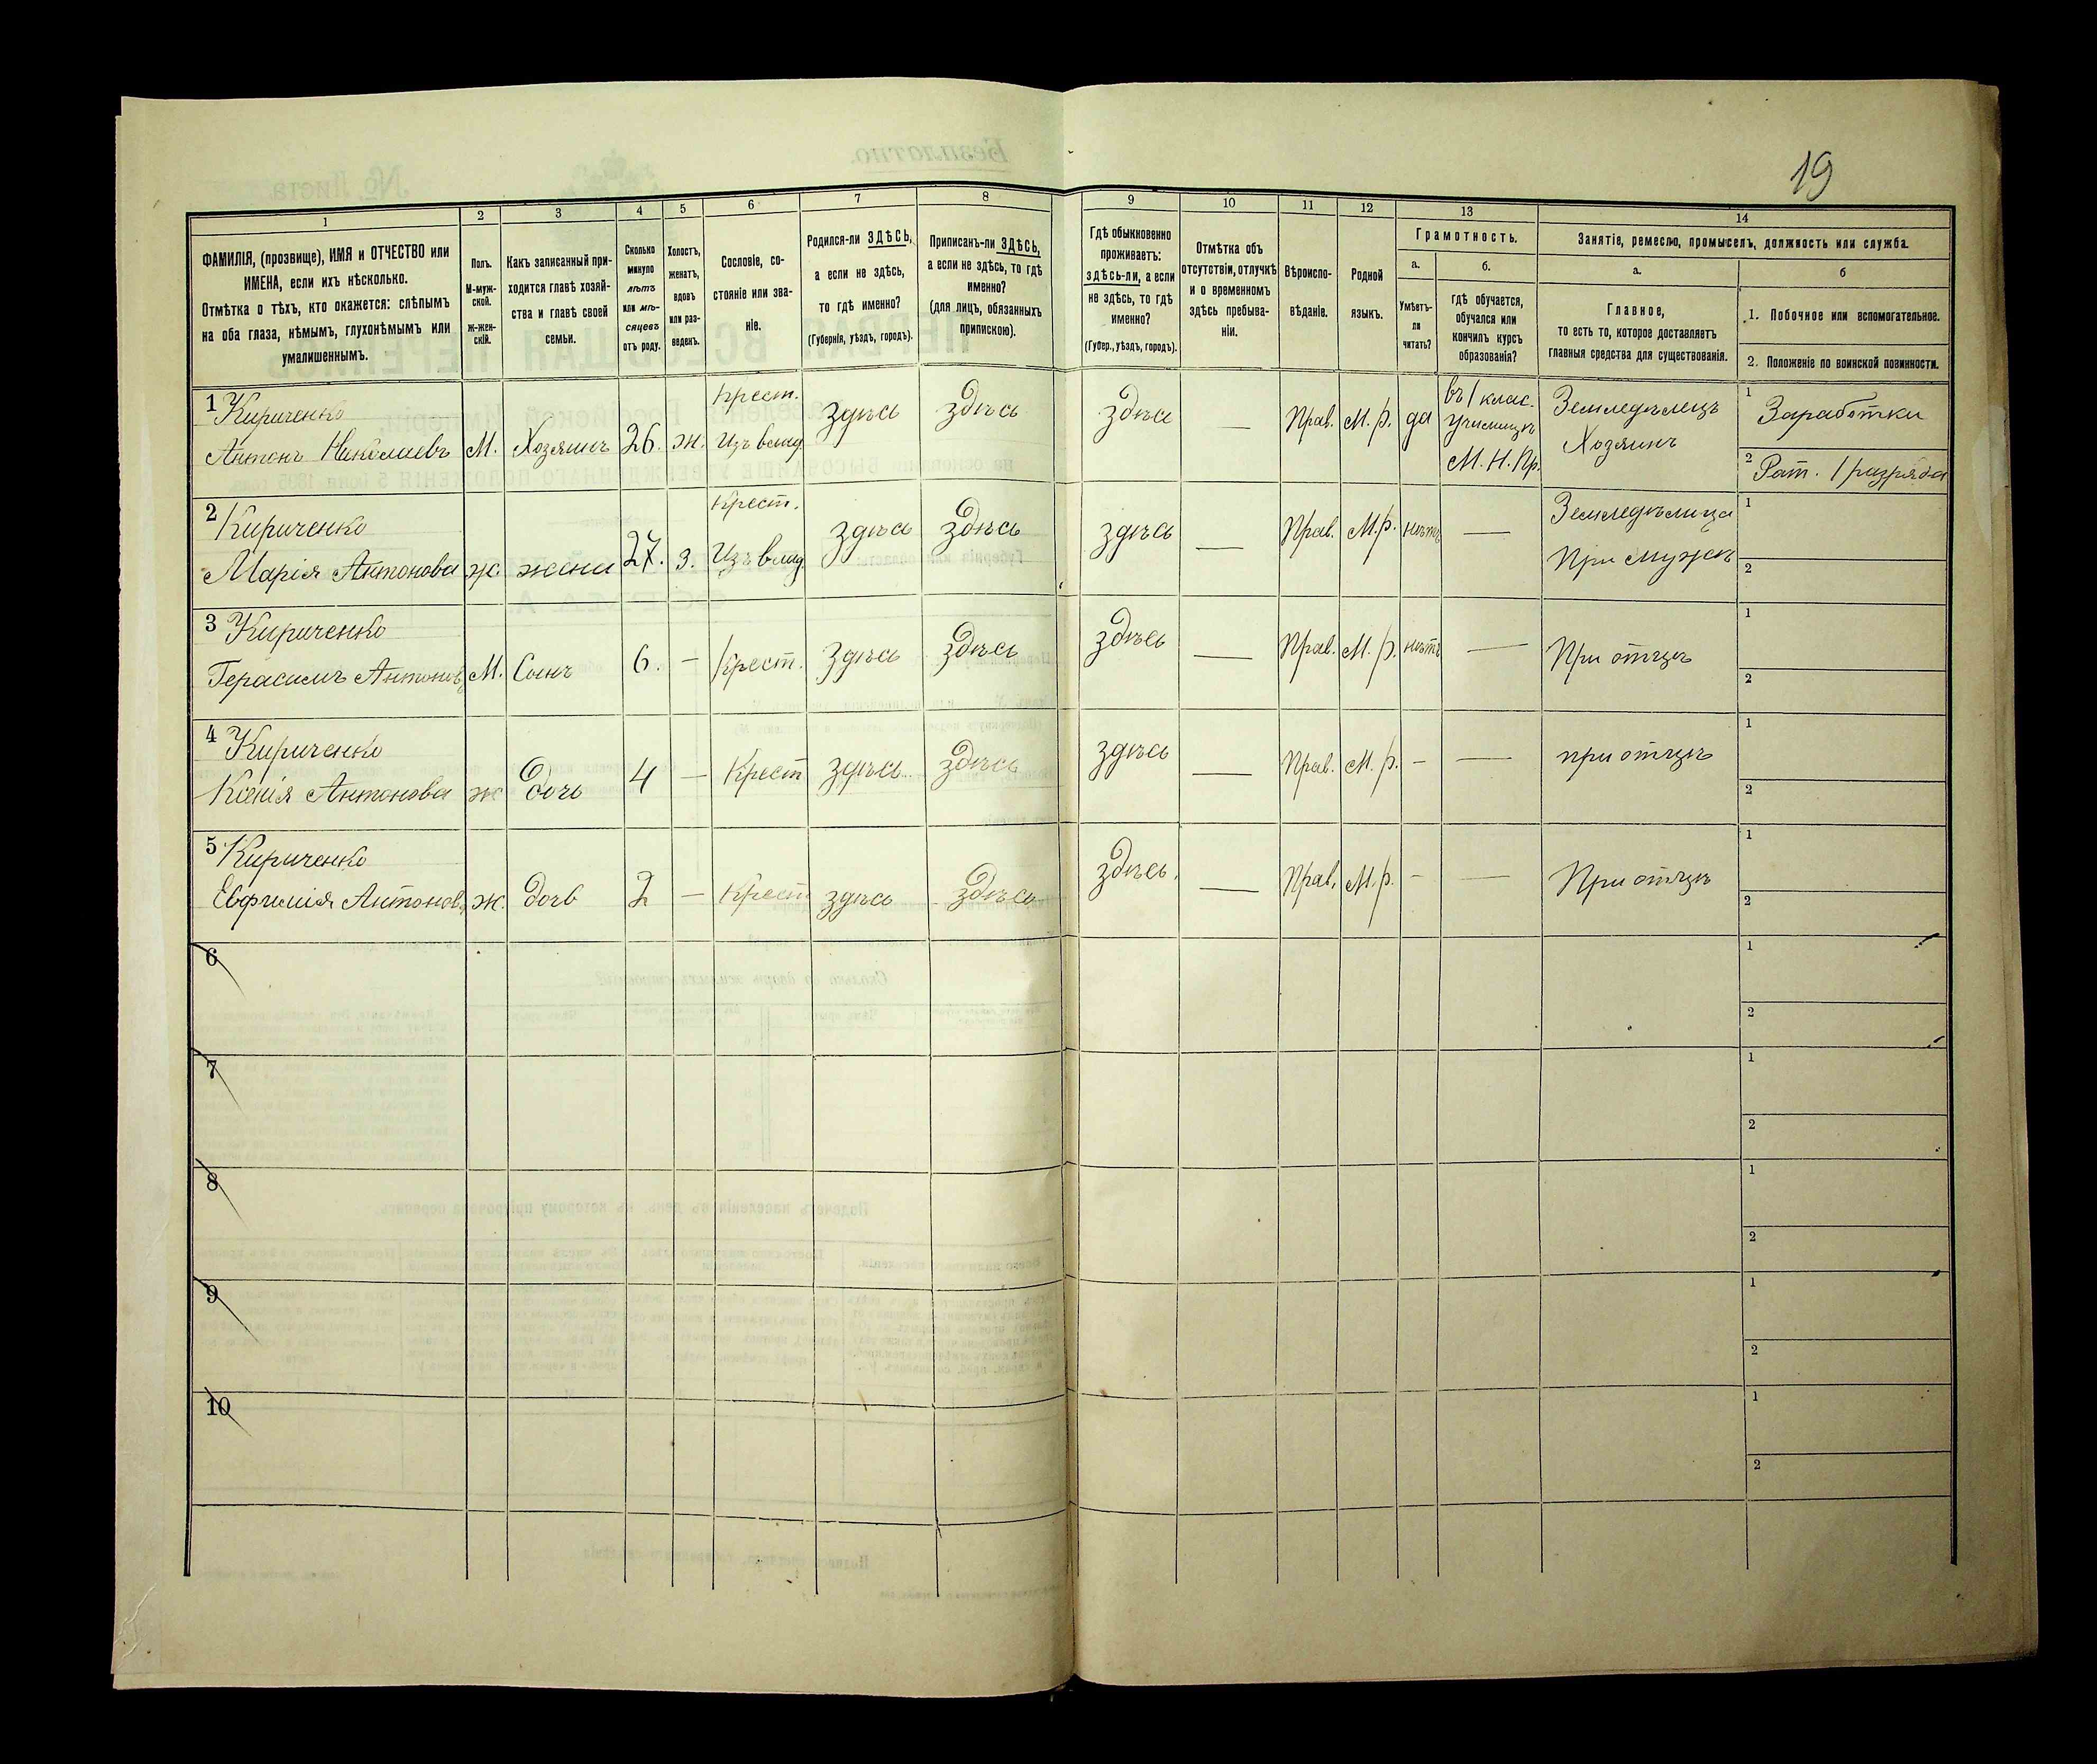 19
1 2 3 4 5 6 7 8 9 10 11 12 13 14
ФАМИЛІЯ, (прозвище), ИМЯ и ОТЧЕСТВО или
ИМЕНА, если ихъ нѣсколько.
Отмѣтка о тѣхъ, кто окажется: слѣпымъ
на оба глаза, нѣмымъ, глухонѣмымъ или
умалишеннымъ.
Полъ.
М-муж-
ской.
Ж-жен-
скій.
Какъ записанный при-
ходится главѣ хозяй-
ства и главѣ своей
семьи.
Сколько
минуло
лѣтъ
или мѣ-
сяцевъ
отъ роду.
Холостъ,
женатъ,
вдовъ
или раз-
веденъ.
Сословіе, со-
стояніе или зва-
ніе.
Родился-ли ЗДѢСЬ,
а если не здѣсь,
то гдѣ именно?
(Губернія, уѣздъ, городъ).
Приписанъ-ли ЗДѢСЬ,
а если не здѣсь, то гдѣ
именно?
(для лицъ, обязанныхъ
припискою).
Гдѣ обыкновенно
проживаетъ:
здѣсь-ли, а если
не здѣсь, то гдѣ
именно?
(Губер., уѣздъ, городъ).
Отмѣтка объ
отсутствіи, отлучкѣ
и о временномъ
здѣсь пребыва-
ніи.
Вѣроиспо-
вѣданіе.
Родной
языкъ.
Грамотность.
а.
Умѣетъ-
ли
читать?
б.
гдѣ обучается,
обучался или
кончилъ курсъ
образованія?
Занятіе, ремесло, промыселъ, должность или служба.
а.
Главное,
то есть то, которое доставляетъ
главныя средства для существованія.
б
1. Побочное или вспомогательное.
2. Положеніе по воинской повинности.
1 Кириченко
Антонъ Николаевъ М. Хозяинъ 26. ж.
Крест.
Изъ влад.
здѣсь здѣсь здѣсь — Прав. М. р. да
въ 1 клас.
училищѣ
М. Н. Пр.
Земледѣлецъ
Хозяинъ
1 Заработки
2 Рат. 1 разряда
2 Кириченко
Марія Антонова ж. жена 27. з.
Крест.
Изъ влад.
здѣсь здѣсь здѣсь — Прав. М. р. нѣтъ —
Земледѣлица
При мужѣ
1
2
3 Кириченко
Герасимъ Антоновъ М. Сынъ 6. — Крест. здѣсь здѣсь здѣсь — Прав. М. р. нѣтъ — При отцѣ
1
2
4 Кириченко
Ксенія Антонова ж дочь 4 — Крест здѣсь здѣсь здѣсь — Прав. М. р. - — при отцѣ
1
2
5 Кириченко
Евфимія Антонов. ж. дочь 2 — Крест здѣсь здѣсь здѣсь. — Прав. М. р. - — При отцѣ
1
2
6
1
2
7
1
2
8
1
2
9
1
2
10
1
2